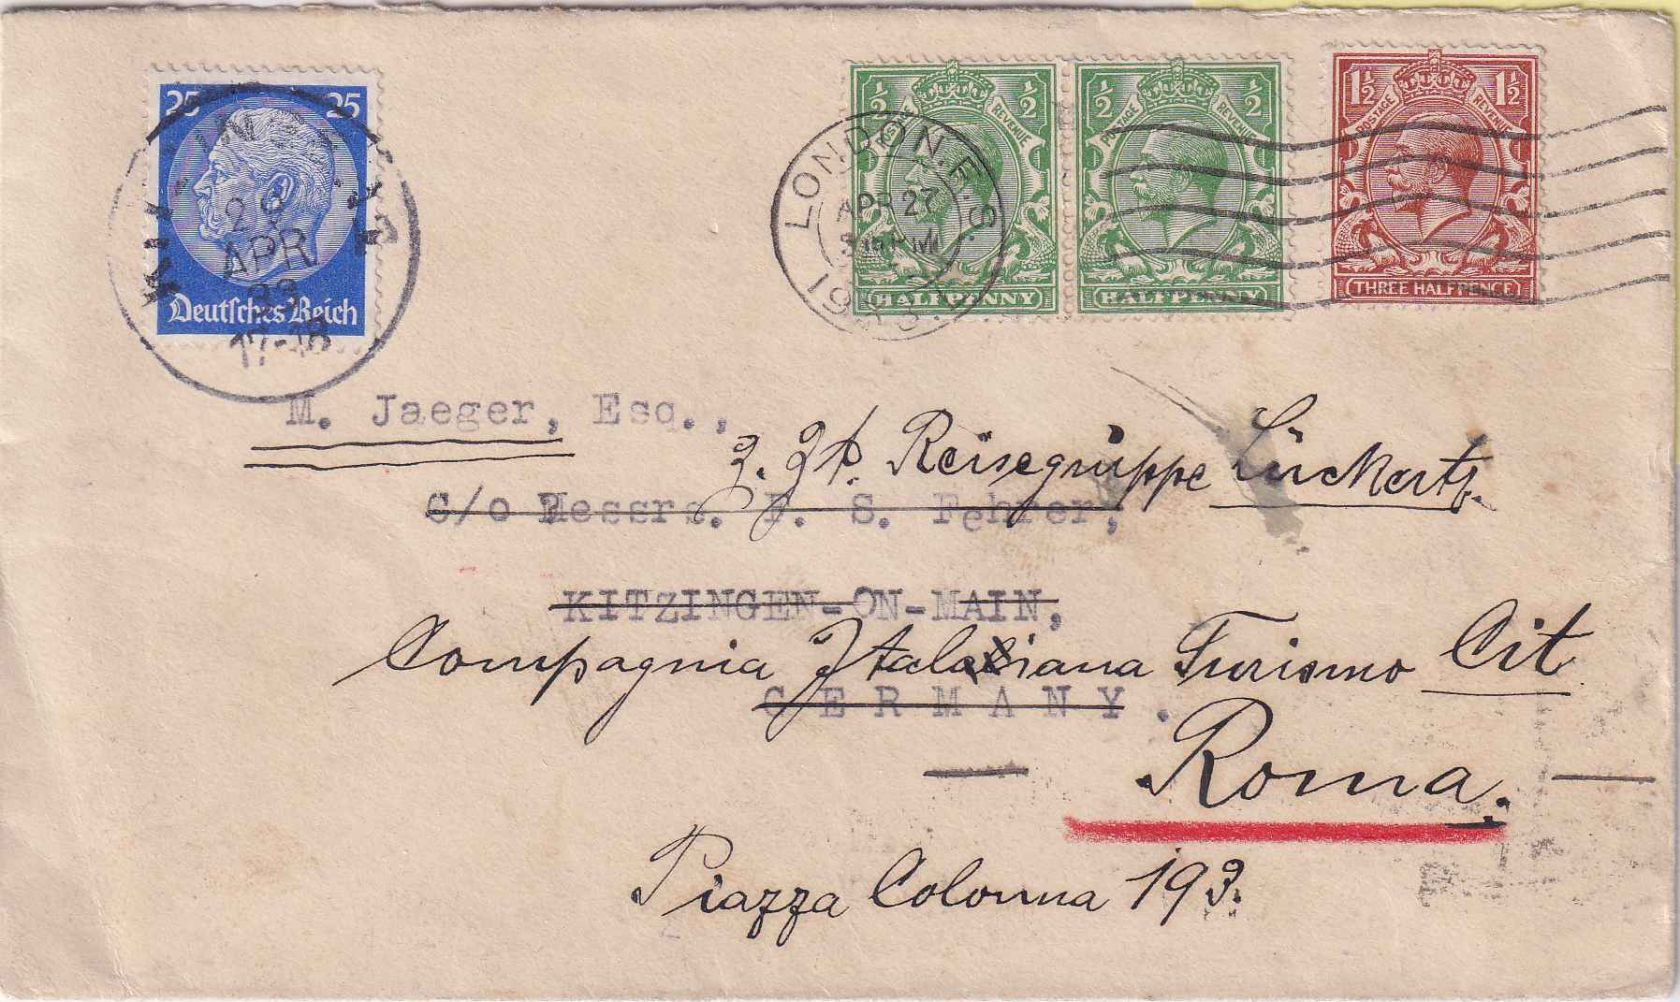 25 25
Deutsches Reich
29
APR
33
17-18
½ ½
POSTAGE REVENUE
HALFPENNY
½ ½
POSTAGE REVENUE
HALFPENNY
1½ 1½
POSTAGE REVENUE
THREE HALFPENCE
LONDON. E.S.
APR 27
PM
1933
M. Jaeger, Esq.,
z. Zt. Reisegruppe Lückertz.
C/o Messrs. F. S. Fehrer,
KITZINGEN-ON-MAIN,
Compagnia Italiana Turismo Cit
GERMANY.
Roma.
Piazza Colonna 193.